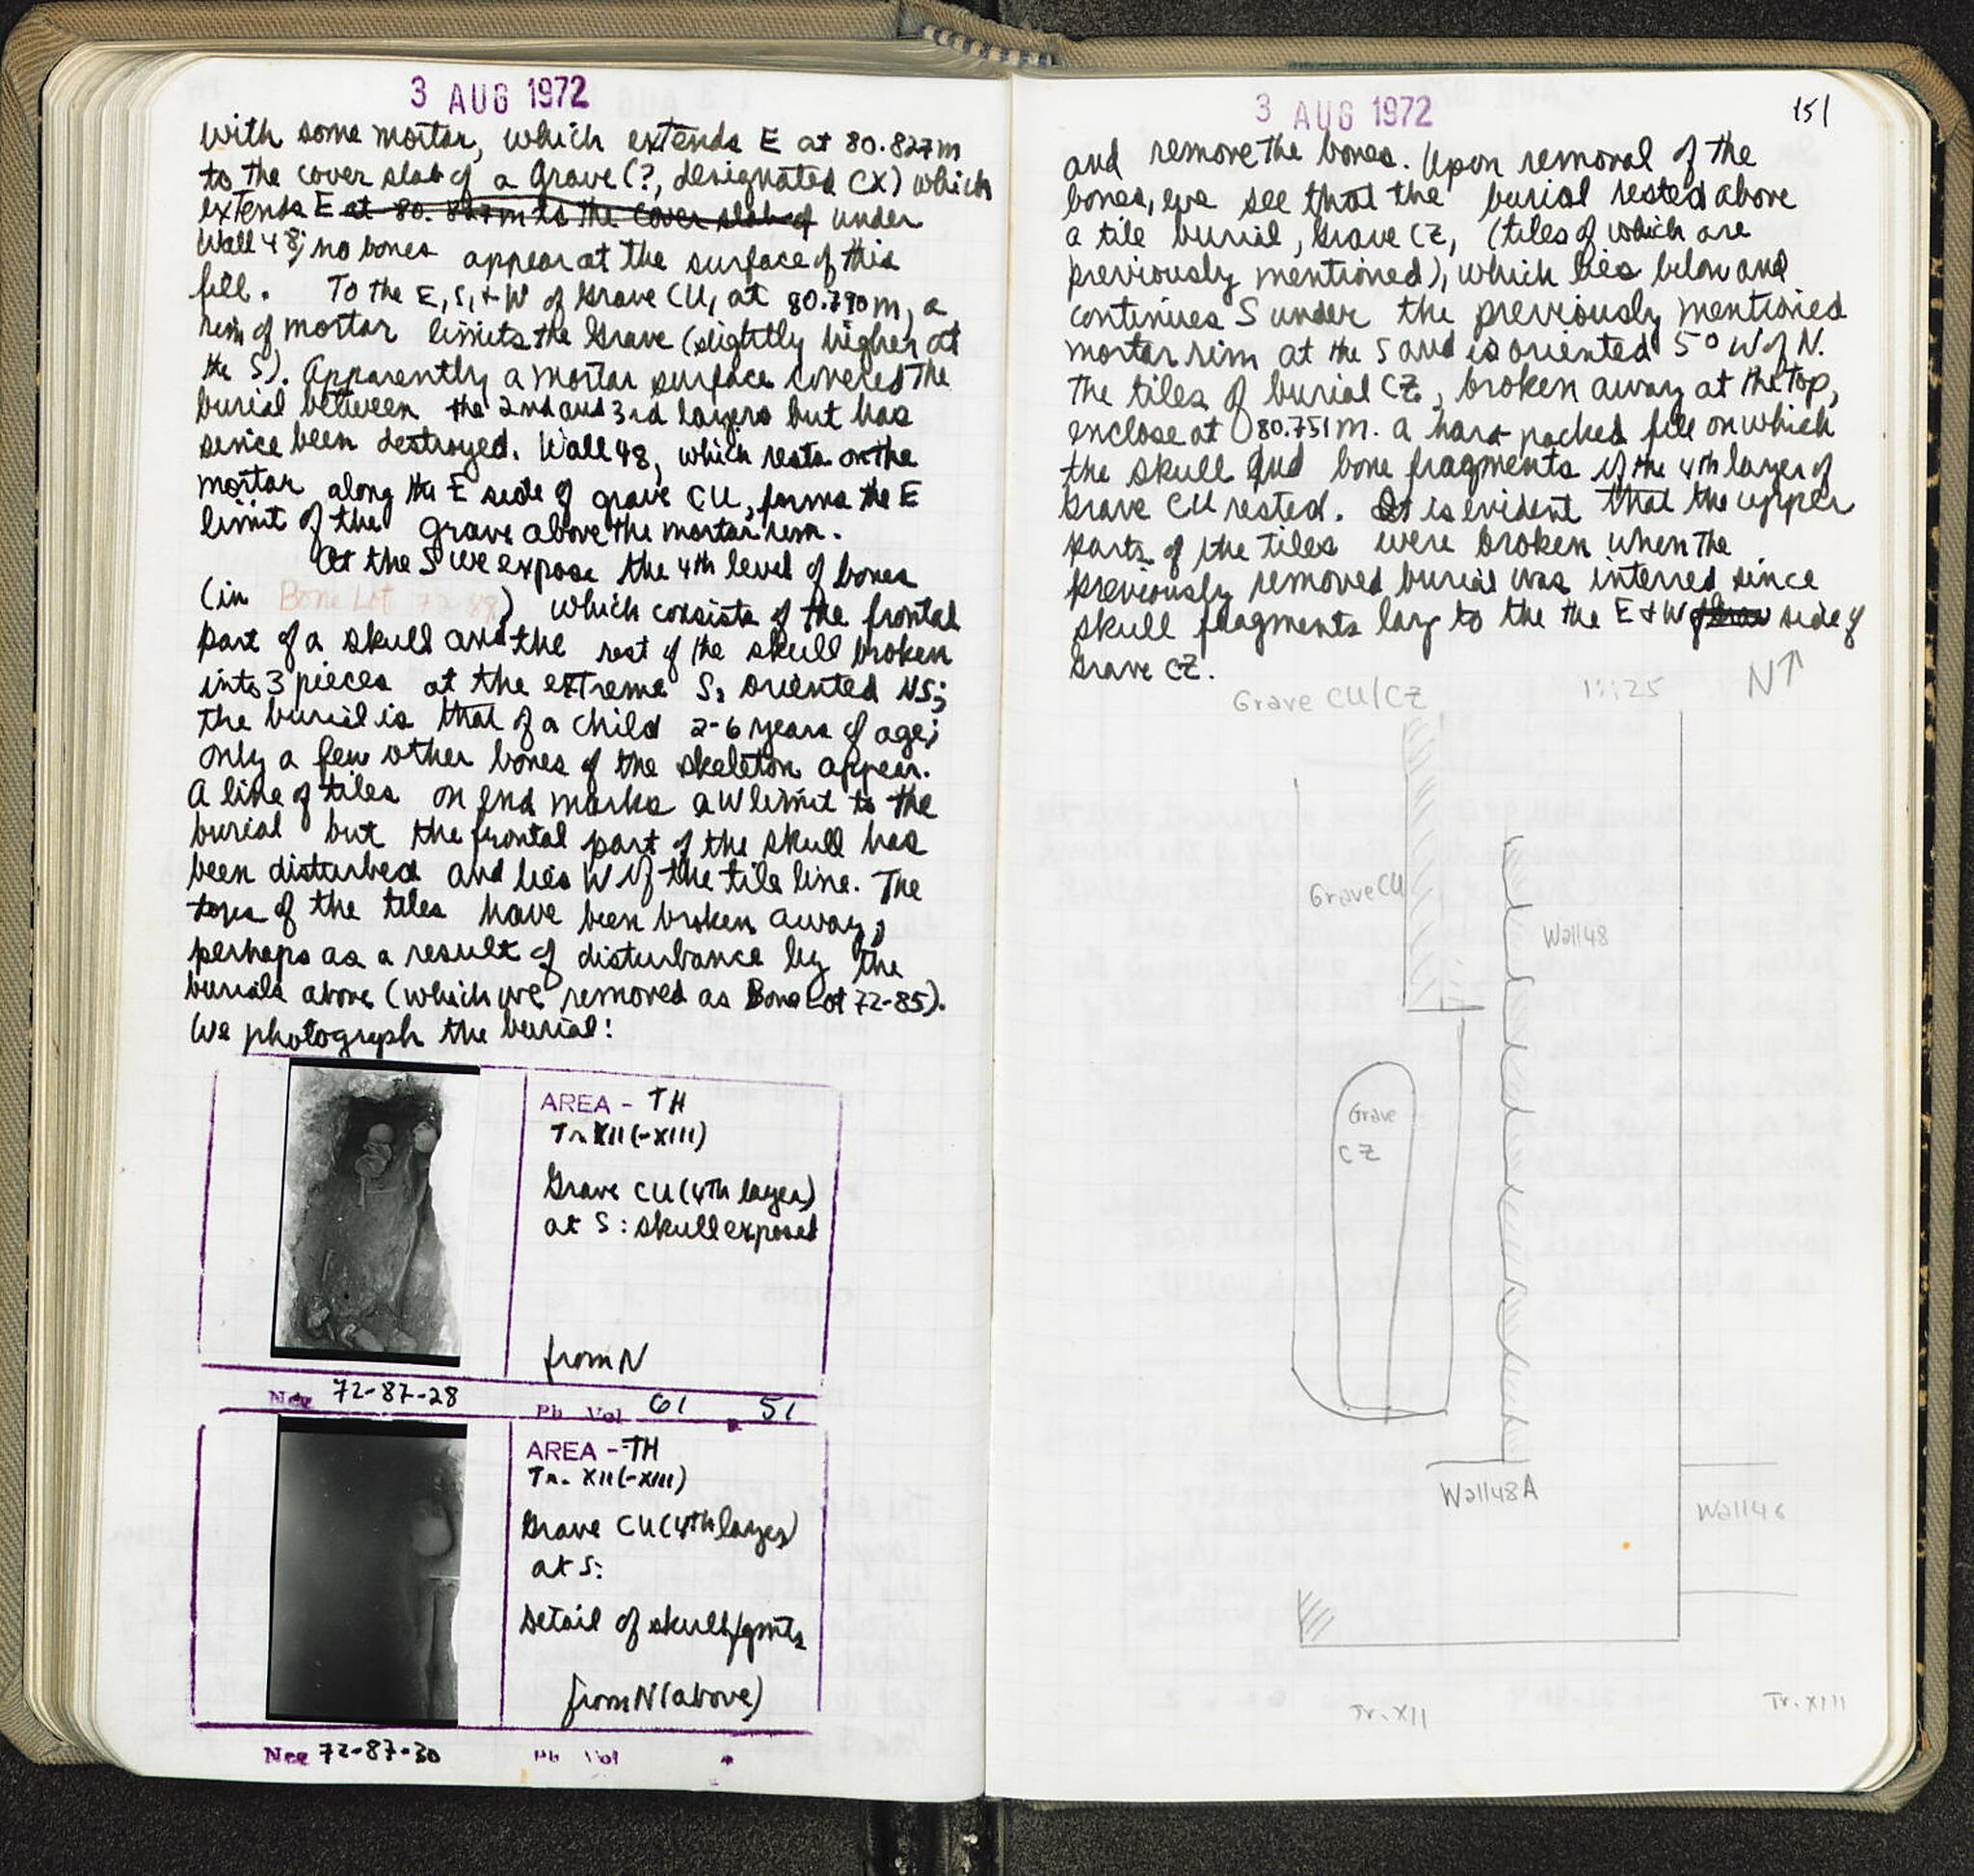 3 AUG 1972
with some mortar, which extends E at 80.827m
to the cover slab of a Grave (?, designated CX) which
extends E at 80.827m to the cover slab of under
Wall 48; no bones appear at the surface of this
fill. To the E, S, + W of Grave CU, at 80.790m, a
rim of mortar limits the Grave (slightly higher at
the S). Apparently a mortar surface covered the
burial between the 2nd and 3rd layers but has
since been destroyed. Wall 48, which rests on the
mortar along the E side of grave CU, forms the E
limit of the grave above the mortar rim.
At the S we expose the 4th level of bones
(in Bone Lot 72-89) which consists of the frontal
part of a skull and the rest of the skull broken
into 3 pieces at the extreme S; oriented NS;
the burial is that of a child 2-6 years of age;
only a few other bones of the skeleton appear.
A line of tiles on end marks a W limit to the
burial but the frontal part of the skull has
been disturbed and lies W of the tile line. The
tops of the tiles have been broken away,
perhaps as a result of disturbance by the
burials above (which we removed as Bone Lot 72-85).
We photograph the burial:
AREA - TH
Tr. XII (-XIII)
Grave CU (4th layer)
at S: skull exposed
from N
Neg 72-87-28 Ph Vol 61 51
AREA - TH
Tr. XII (-XIII)
Grave CU (4th layer)
at S:
Detail of skull fgmts
from N (above)
Neg 72-87-30 Ph Vol
3 AUG 1972
151
and remove the bones. Upon removal of the
bones, we see that the burial rested above
a tile burial, Grave CZ, (tiles of which are
previously mentioned), which lies below and
continues S under the previously mentioned
mortar rim at the S and is oriented 5° W of N.
The tiles of burial CZ, broken away at the top,
enclose at 80.751m. a hard packed fill on which
the skull and bone fragments of the 4th layer of
Grave CU rested. It is evident that the upper
parts of the tiles were broken when the
previously removed burial was interred since
skull fragments lay to the the E + W side of
Grave CZ.
Grave CU/CZ 1:25 N
Grave CU
Wall 48
Grave
CZ
Wall 48A
Wall 46
Tr. XII
Tr. XIII